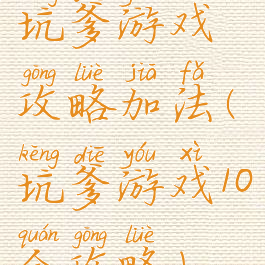 坑爹游戏
gōng lüè jiā fǎ
攻略加法(
kēng diē yóu xì
坑爹游戏10
quán gōng lüè
全攻略)